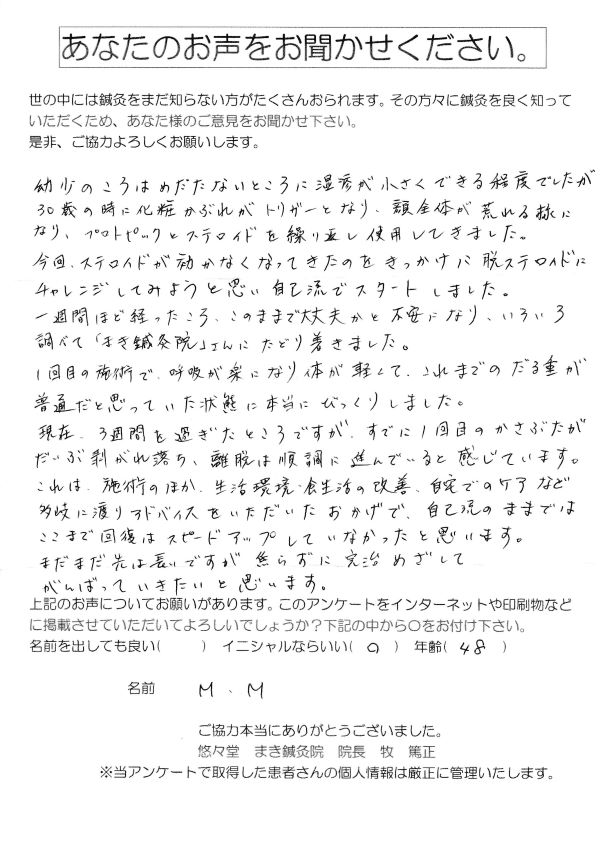 あなたのお声をお聞かせください。
世の中には鍼灸をまだ知らない方がたくさんおられます。その方々に鍼灸を良く知って
いただくため、あなた様のご意見をお聞かせ下さい。
是非、ご協力よろしくお願いします。
幼少のころはめだたないところに湿疹が小さくできる程度でしたが
30歳の時に化粧かぶれがトリガーとなり、顔全体が荒れる様に
なり、プロトピックとステロイドを繰り返し使用してきました。
今回、ステロイドが効かなくなってきたのをきっかけに脱ステロイドに
チャレンジしてみようと思い自己流でスタートしました。
一週間ほど経ったころ、このままで大丈夫かと不安になり、いろいろ
調べて「まき鍼灸院」さんにたどり着きました。
1回目の施術で、呼吸が楽になり体が軽くて、これまでのだる重が
普通だと思っていた状態に本当にびっくりしました。
現在、3週間を過ぎたところですが、すでに1回目のかさぶたが
だいぶ剥がれ落ち、離脱は順調に進んでいると感じています。
これは、施術のほか、生活環境・食生活の改善、自宅でのケアなど
多岐に渡りアドバイスをいただいたおかげで、自己流のままでは
ここまで回復はスピードアップしていなかったと思います。
まだまだ先は長いですが焦らずに完治めざして
がんばっていきたいと思います。
上記のお声についてお願いがあります。このアンケートをインターネットや印刷物など
に掲載させていただいてよろしいでしょうか?下記の中から○をお付け下さい。
名前を出しても良い( ) イニシャルならいい( ○ ) 年齢( 48 )
名前 M、M
ご協力本当にありがとうございました。
悠々堂 まき鍼灸院 院長 牧 篤正
※当アンケートで取得した患者さんの個人情報は厳正に管理いたします。